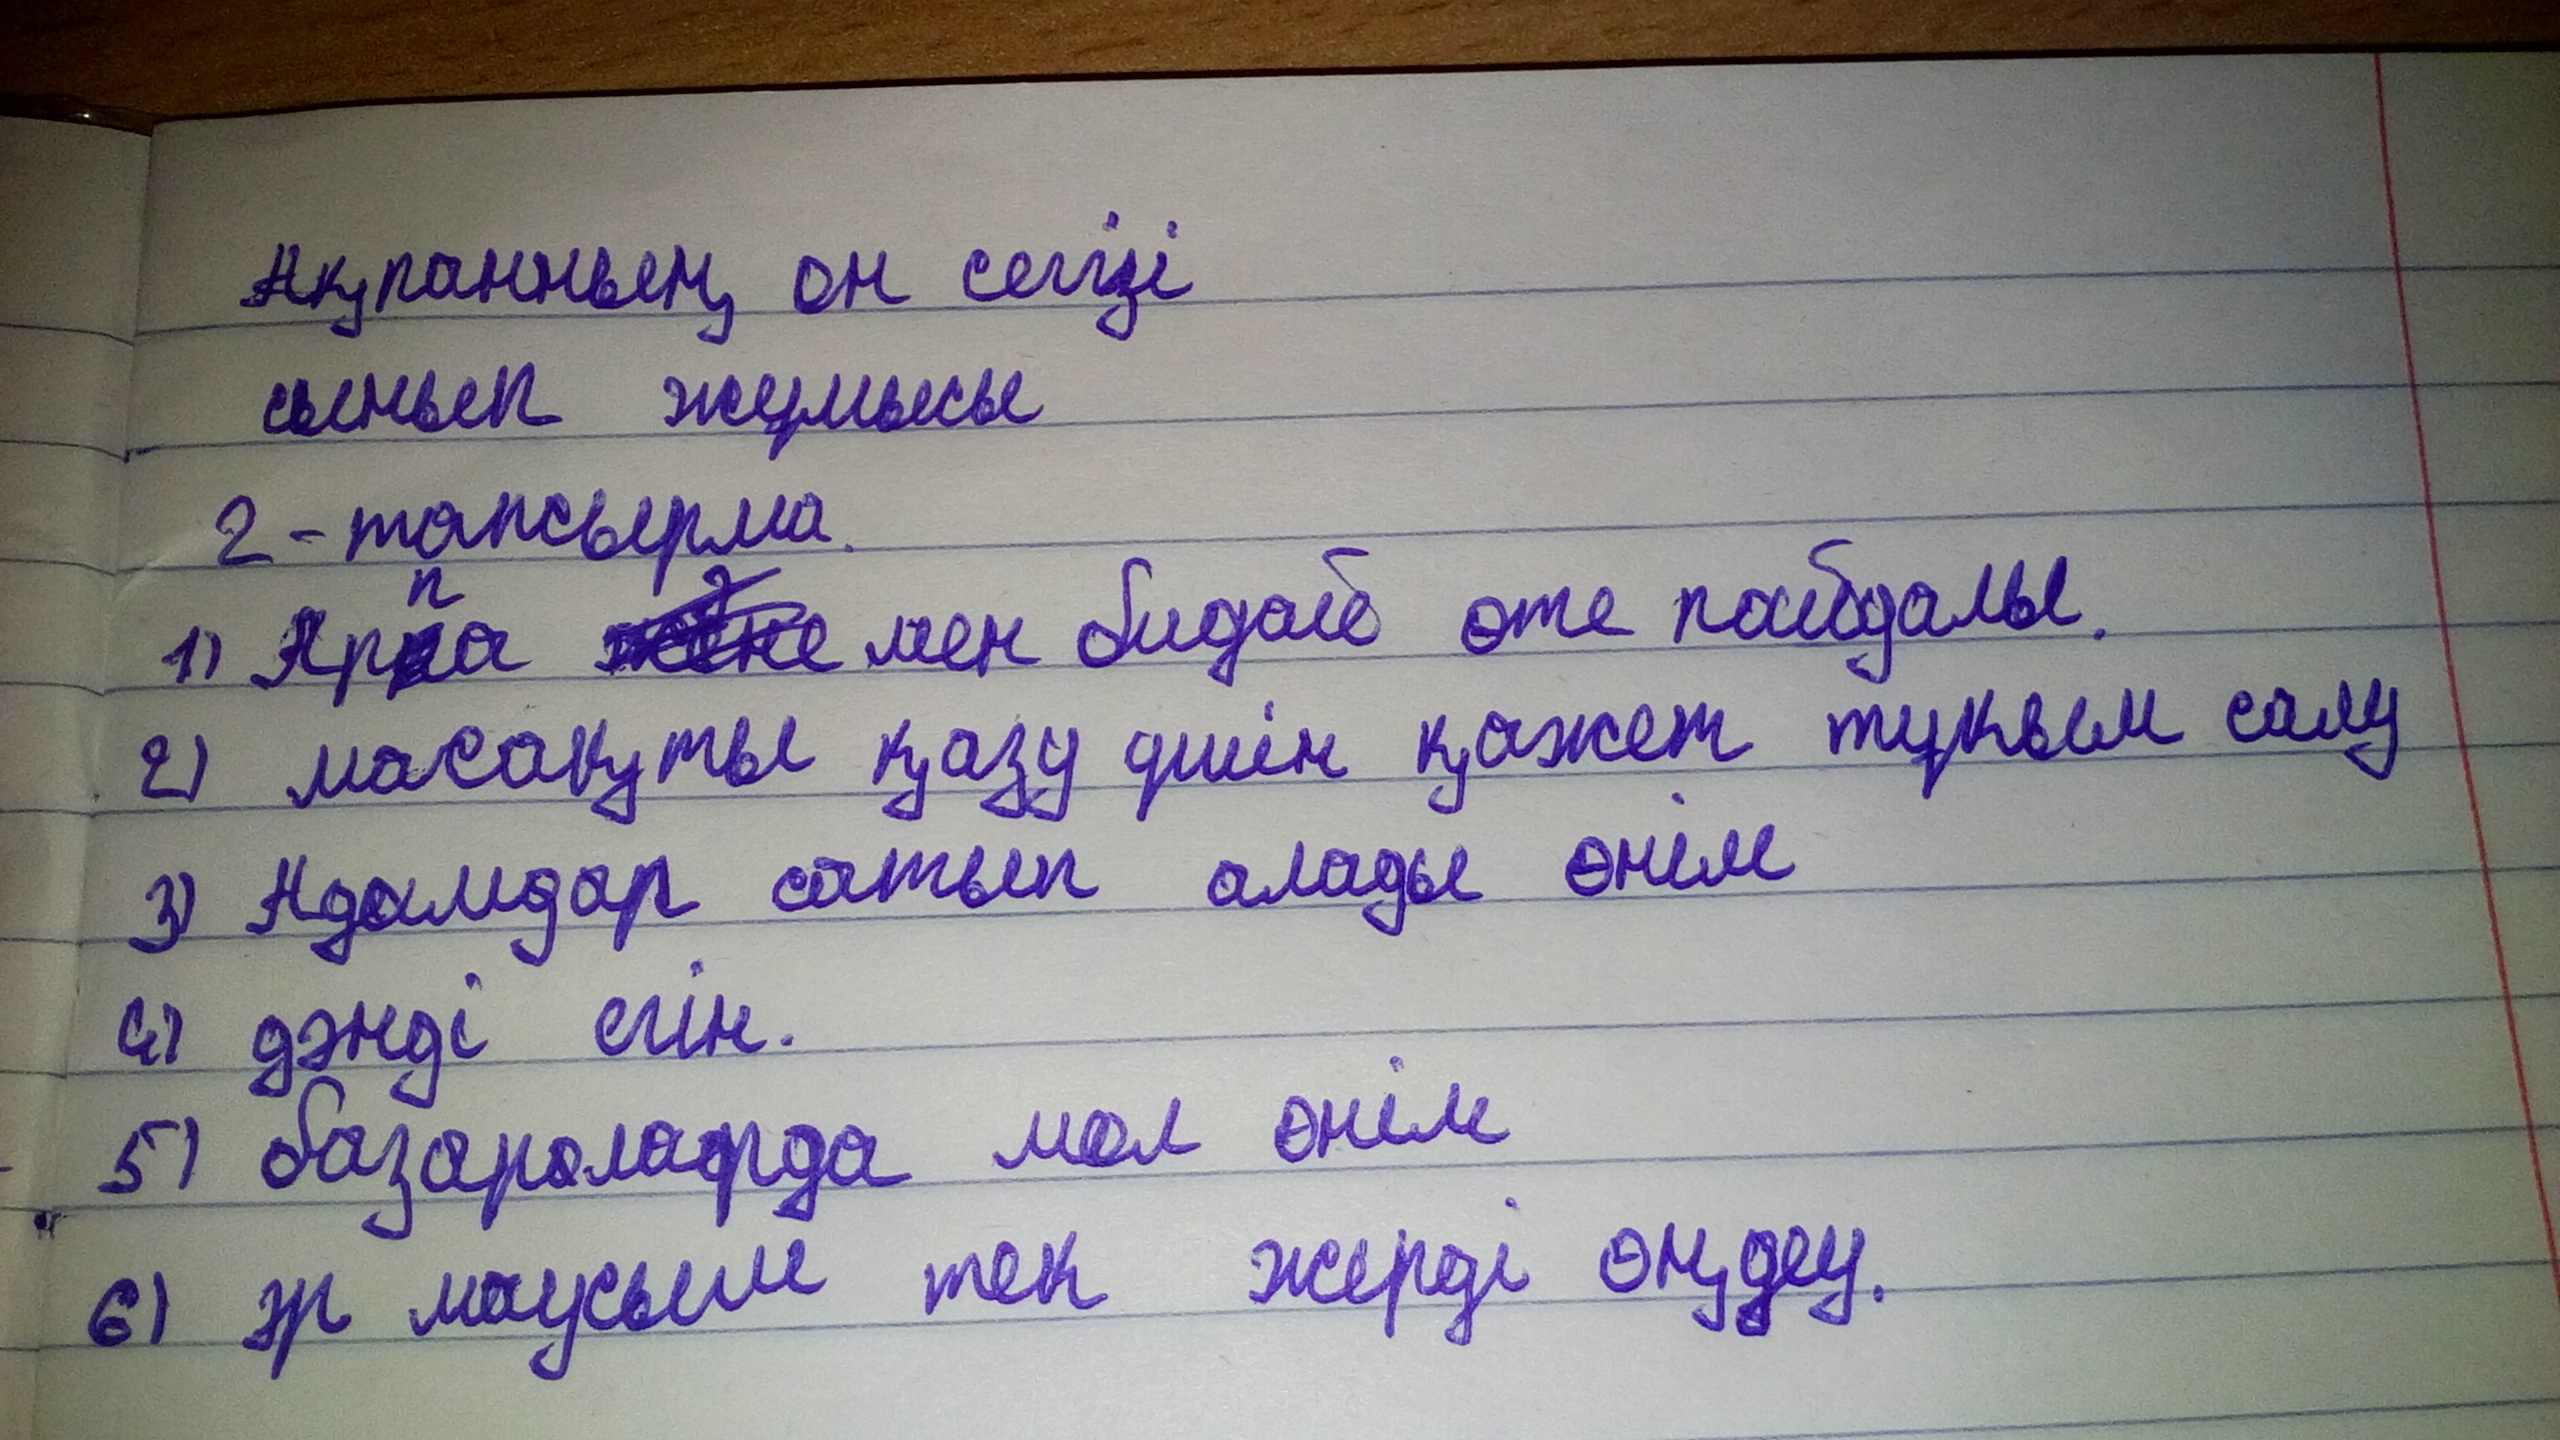 Ақпанның он сегізі
сынып жұмысы
2-тапсырма.
1) Арпа мен бидай өте пайдалы.
2) масақты қазу үшін қажет тұкым салу
3) Адамдар сатып алады өнім
4) дәнді егін.
5) базарларда мол өнім
6) әр маусым тек жерді өңдеу.